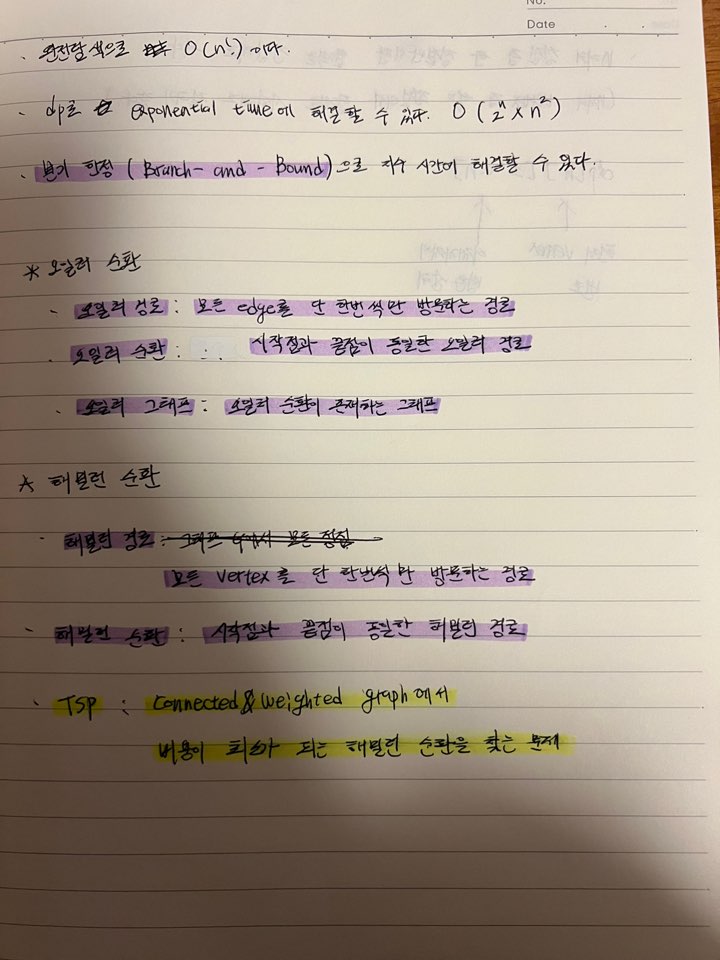 No.
Date . .
· 완전탐색으로 O(n!) 이다.
· dp로 exponential time에 해결할 수 있다. O(2ⁿ × n²)
· 분기 한정 (Branch- and - Bound)으로 지수 시간에 해결할 수 있다.
* 오일러 순환
· 오일러 경로 : 모든 edge를 단 한번씩만 방문하는 경로
· 오일러 순환 : 시작점과 끝점이 동일한 오일러 경로
· 오일러 그래프 : 오일러 순환이 존재하는 그래프
* 해밀턴 순환
· 해밀턴 경로 : 그래프 모든 정점
모든 vertex를 단 한번씩만 방문하는 경로
· 해밀턴 순환 : 시작점과 끝점이 동일한 해밀턴 경로
· TSP : Connected & Weighted graph에서
비용이 최소가 되는 해밀턴 순환을 찾는 문제